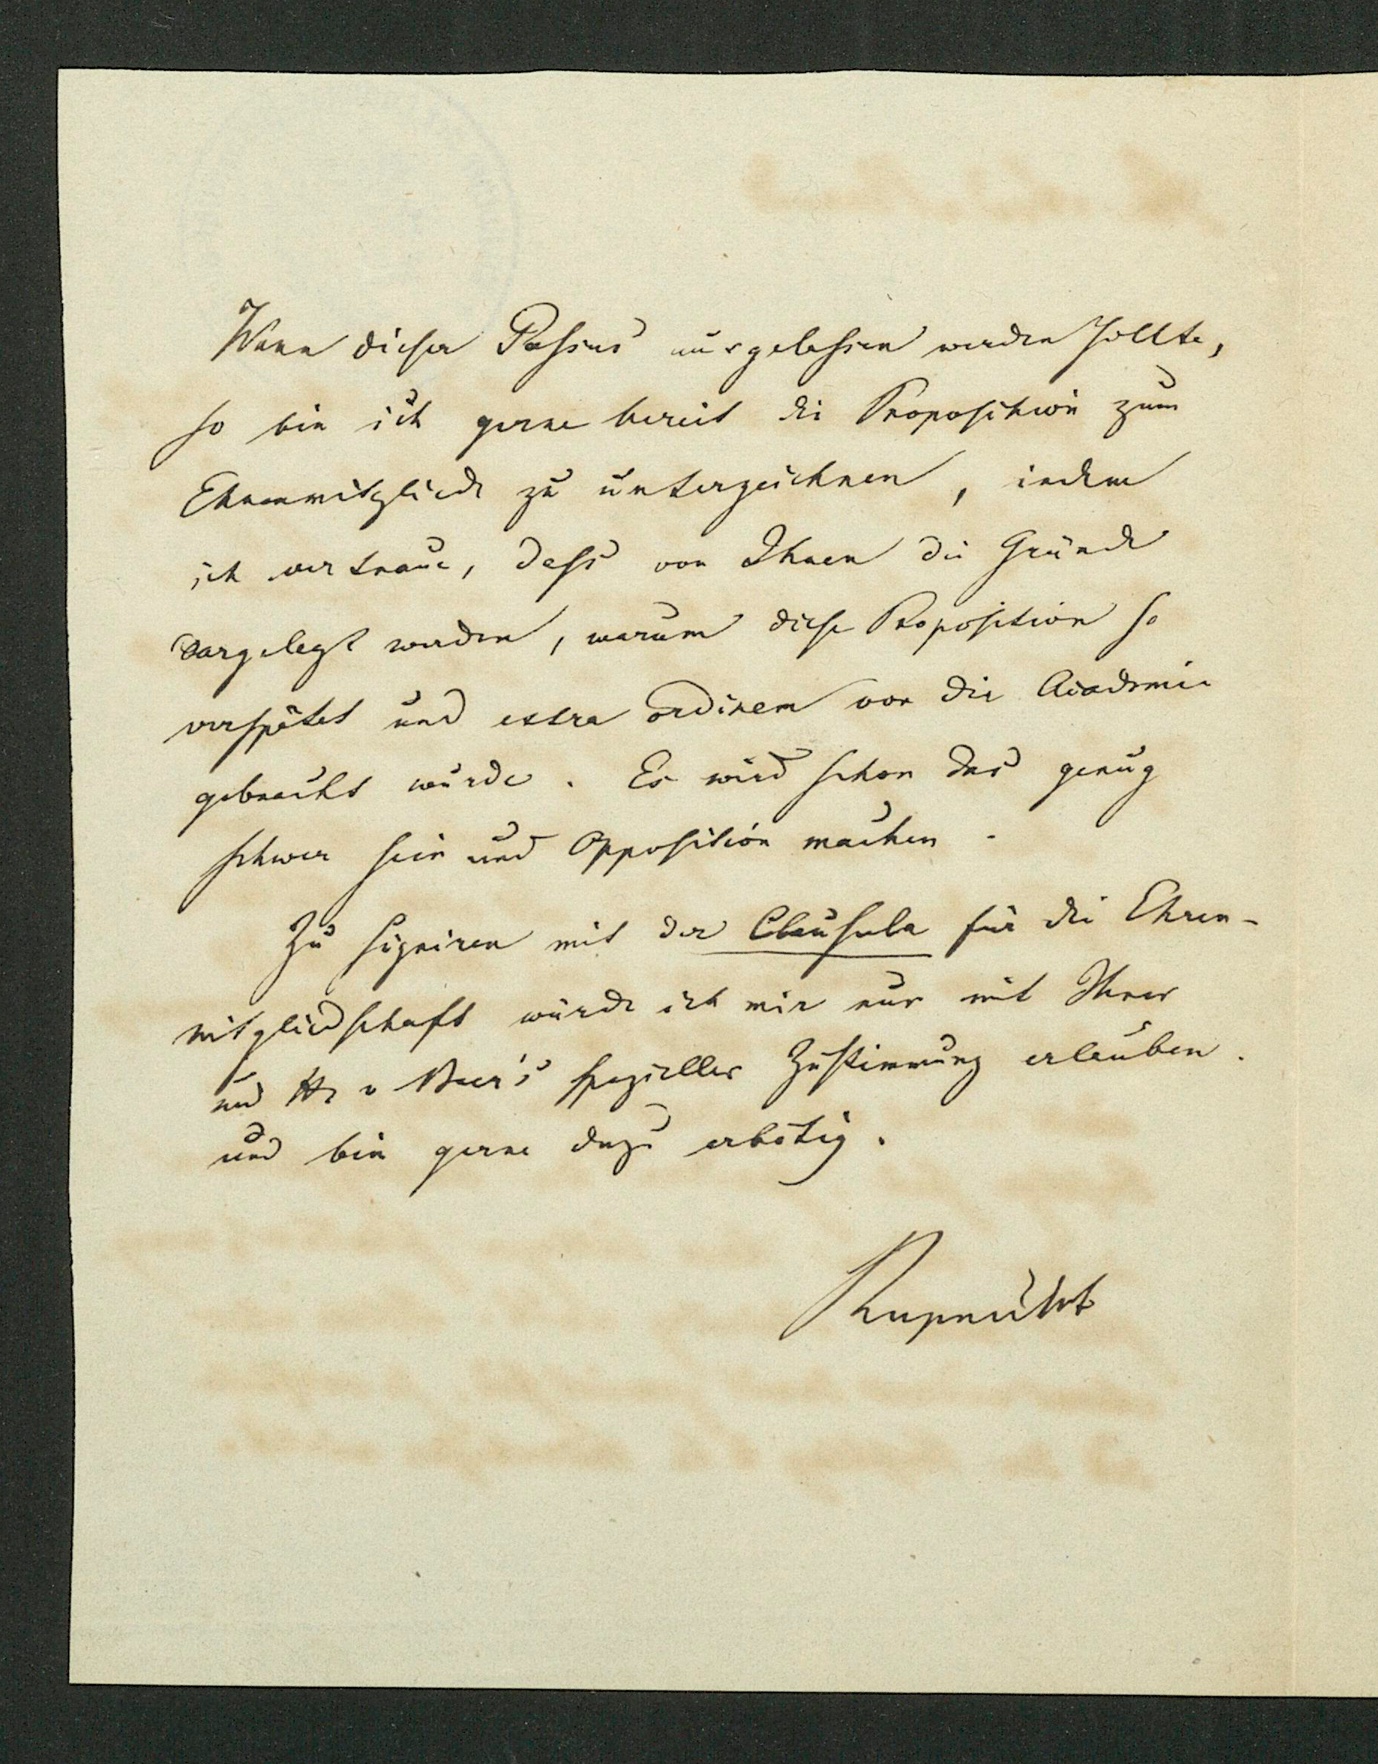 Wenn dieser Passus ausgelassen werden sollte,
so bin ich gerne bereit die Proposition zum
Ehrenmitgliede zu unterzeichnen, indem
ich vertraue, dass von Ihnen die Gründe
dargelegt werden, warum diese Proposition so
verspätet und extra ordinem vor die Academie
gebracht wurde. Es wird schon das genug
schwer sein und Opposition machen.
Zu signiren mit der Clausula für die Ehren-
mitgliedschaft würde ich mir nur mit Ihrer
und Hr v Baer's spezieller Zustimmung erlauben.
und bin gerne dazu erbötig.
Ruprecht